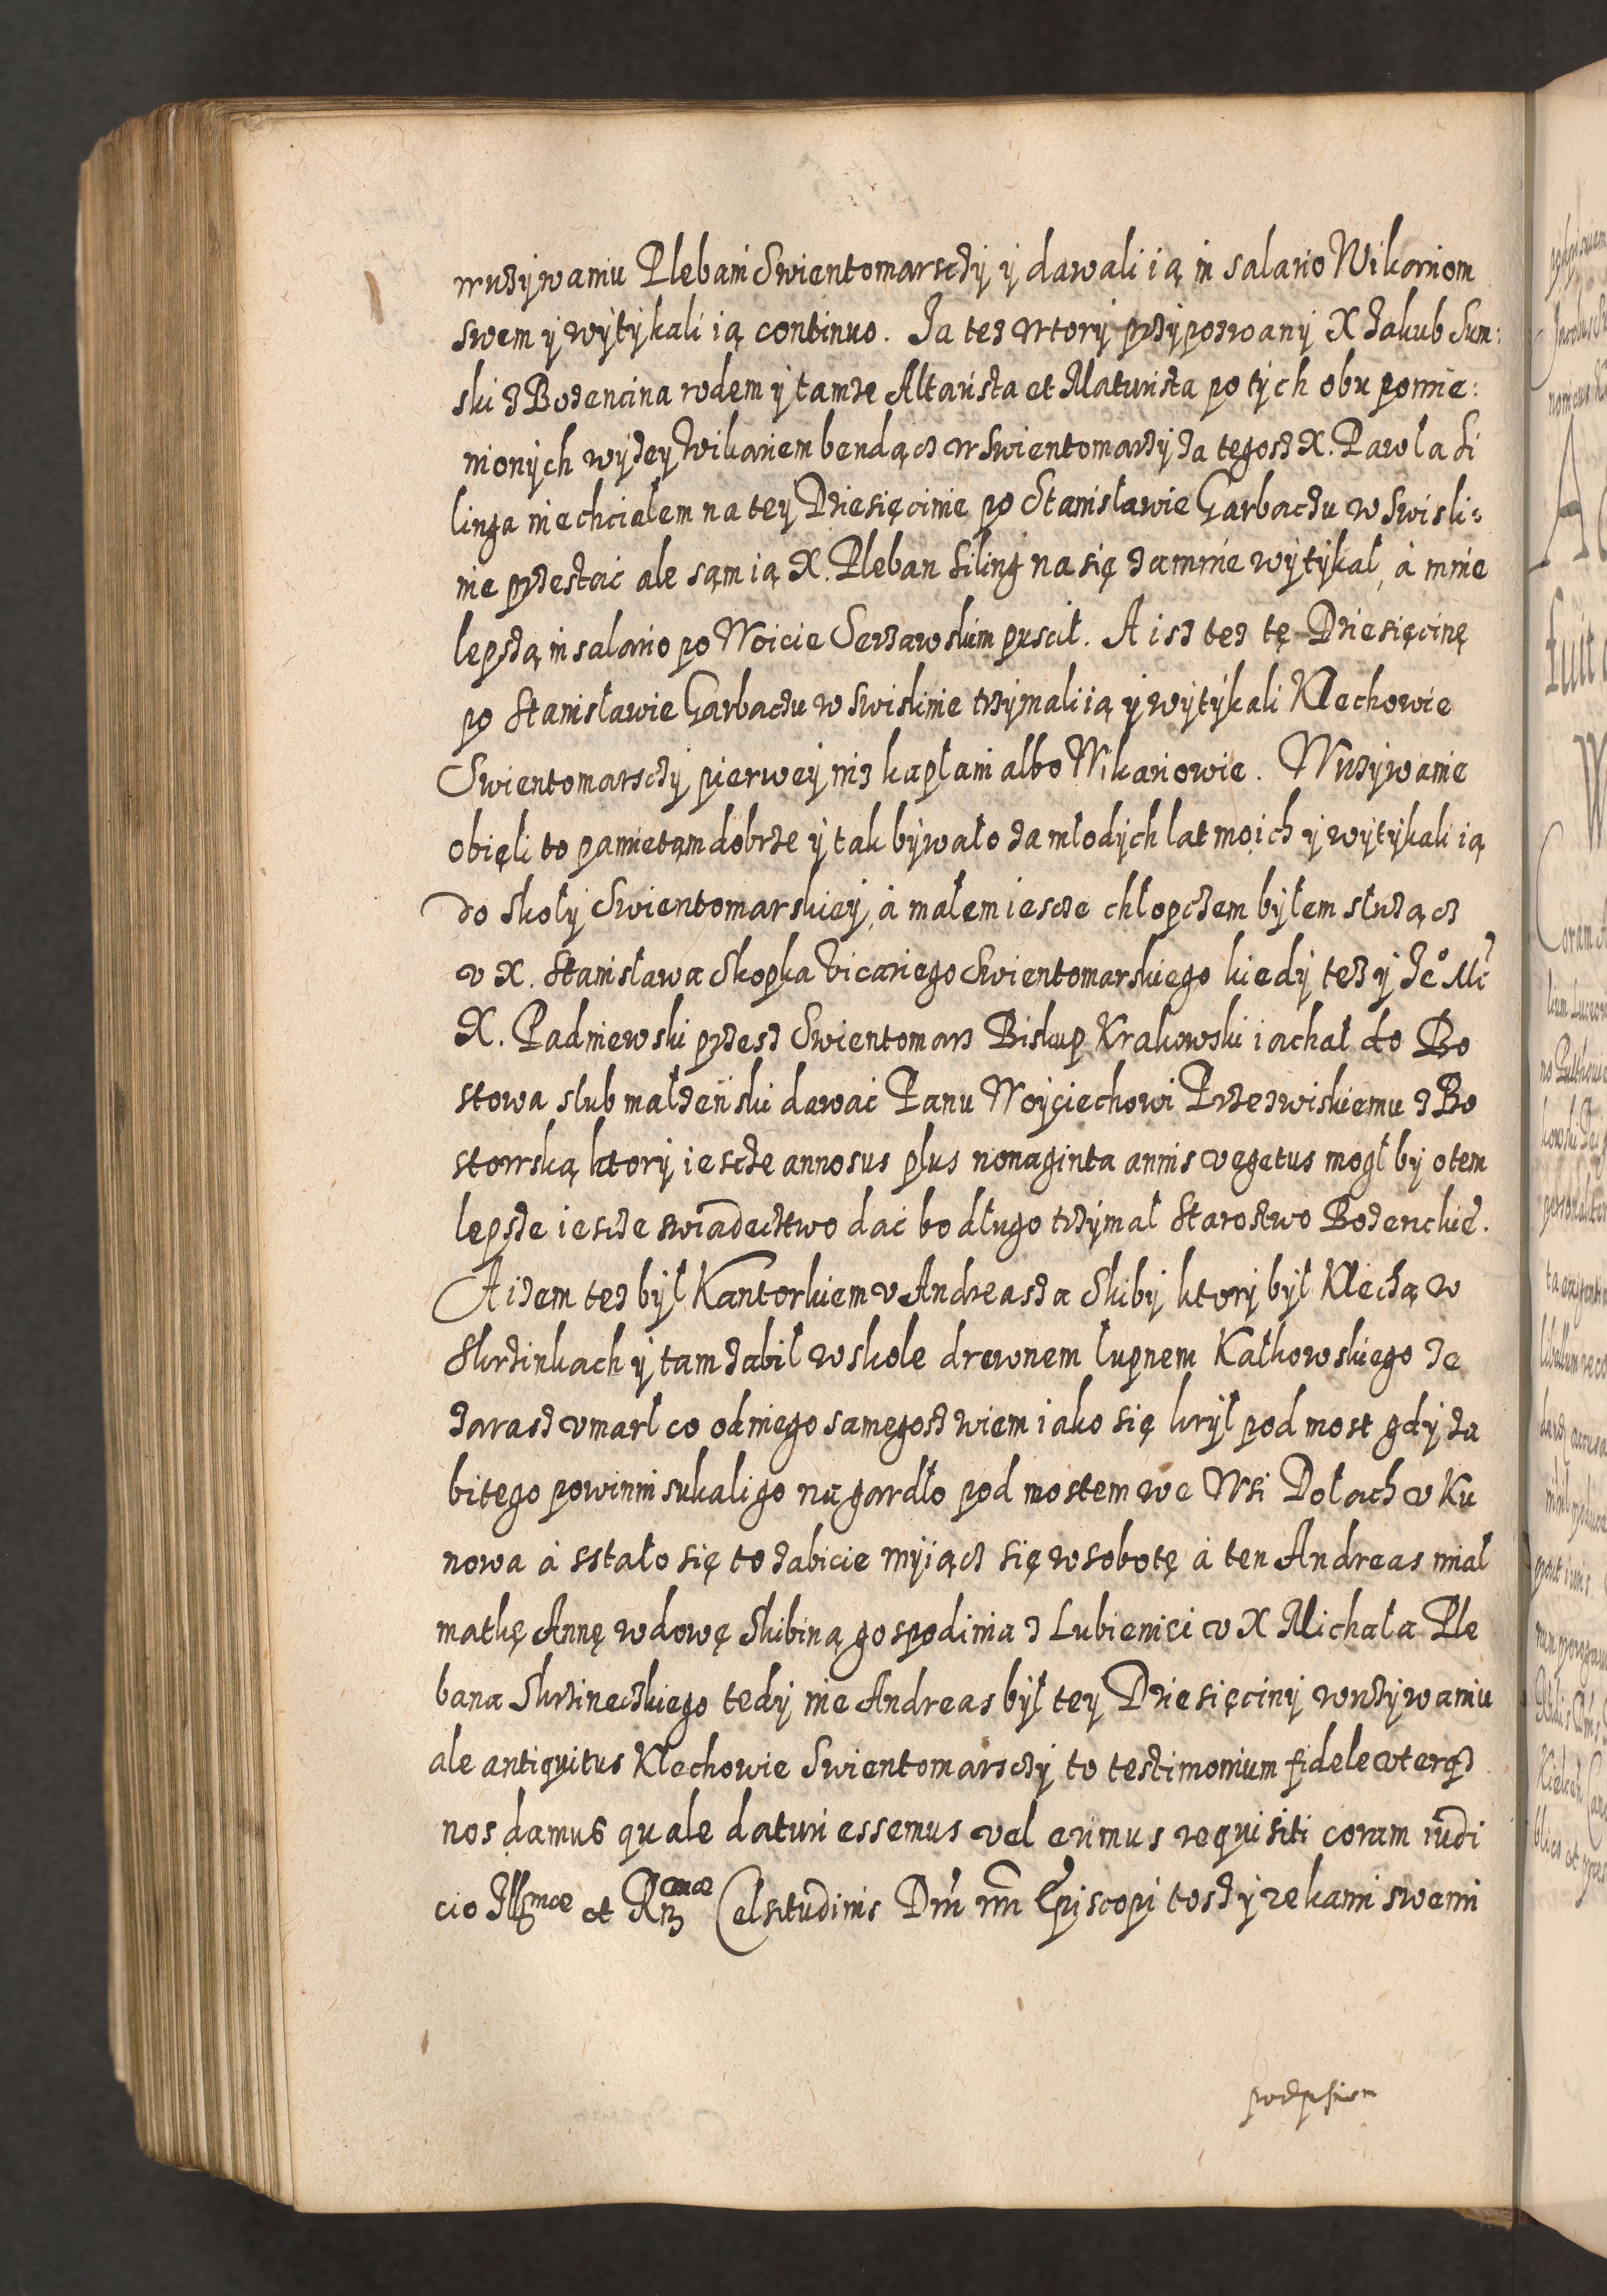 wuzywaniu Plebani Swientomarsczy y dawali ią in salario Wikariom
swem y wytykali ią continuo. Ja tez wtory przyposwany X Jakub Sum:
ski z Bozencina rodem y tamze Altarista et Maturista po tych obu pomie:
nionych wyzey Wikariem bendącz w Swientomarzy za tegosz X. Pawla Si
linga niechcialem na tey Dziesięcinie po Stanislawie Garbaczu w Swisli:
nie przestac ale sąm ią X. Pleban Siling na się zamnie wytykal, á mnie
lepszą in salario po Woicie Serzawskim puscil. A isz tez tę Dziesięcinę
po Stanisławie Garbaczu w Swislinie trzymali ią y wytykali Klechowie
Swientomarsczy pierwey niz kapłani albo Wikariowie. Wuzywanie
obięli to pamietąm dobrze y tak bywało za mlodych lat moich y wytykali ią
do Skoły Swientomarskiey, á małem iescze chłopczem byłem słuzącz
v X. Stanisława Skopka Vicariego Swientomarskiego kiedy tez y Jeº Mć
X. Padniewski przesz Swientomarz Biskup Krakowski iachał do Bo
stowa slub małzeński dawać Panu Woyciechowi Przezwiskiemu z Bo
stowską ktory iescze annosus plus nonaginta annis vegetus mogł by otem
lepsze iescze swiadecztwo dać bo długo trzymał Starostwo Bozenckie.
A izem tez był Kantorkiem v Andreasza Skiby ktory był Klechą w
Skrzinkach y tam zabił w skole drewnem łupnem Kałkowskiego ze
zarasz vmarł co odniego samegosz wiem iako się krył pod most gdy za
bitego powinni sukali go na gardło pod mostem we Wsi Dołach v Ku
nowa á sstało się to zabicie myiącz się w sobotę á ten Andreas miał
matkę Annę wdowę Skibiną gospodinia z Lubienici v X Michała Ple
bana Skrzineczkiego tedy nie Andreas był tey Dziesięciny wuzywaniu
ale antiquitus Klechowie Swientomarsczy to testimonium fidele vterqz
nos damus quale daturi essemus vel erimus requisiti coram iudi
cio Illsmæ et Rmæ Celsitudinis Dni nri Episcopi tosz y rekami swemi
podpisuiem